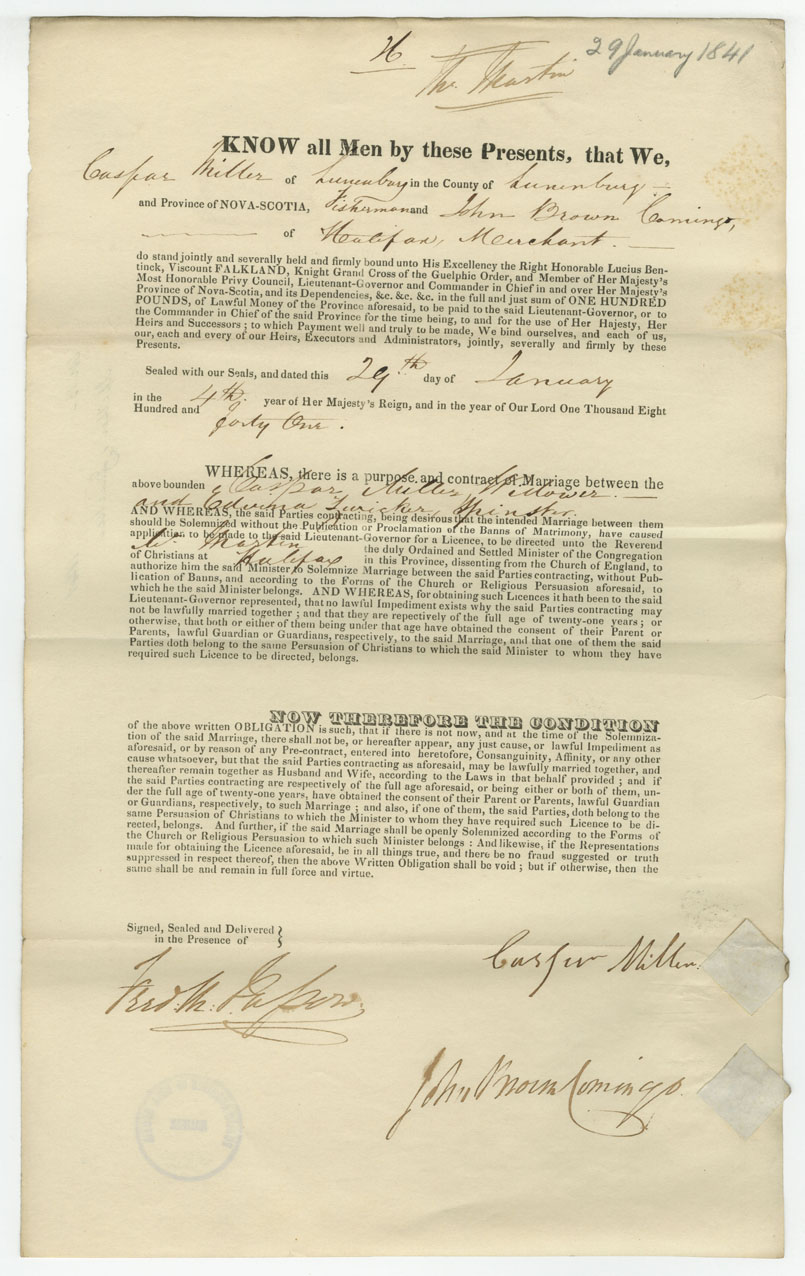 H
29 January 1841
Mr. Martin
KNOW all Men by these Presents, that We,
Caspar Miller of Lunenburg in the County of Lunenburg —
and Province of NOVA-SCOTIA, Fisherman and John Brown Comingo,
— of Halifax, Merchant. —
do stand jointly and severally held and firmly bound unto His Excellency the Right Honorable Lucius Ben-
tinck, Viscount FALKLAND, Knight Grand Cross of the Guelphic Order, and Member of Her Majesty's
Most Honorable Privy Council, Lieutenant-Governor and Commander in Chief in and over Her Majesty's
Province of Nova-Scotia, and its Dependencies, &c. &c. &c. in the full and just sum of ONE HUNDRED
POUNDS, of Lawful Money of the Province aforesaid, to be paid to the said Lieutenant-Governor, or to
the Commander in Chief of the said Province for the time being, to and for the use of Her Hajesty, Her
Heirs and Successors; to which Payment well and truly to be made, We bind ourselves, and each of us,
our, each and every of our Heirs, Executors and Administrators, jointly, severally and firmly by these
Presents.
Sealed with our Seals, and dated this 29th day of January
in the 4th year of Her Majesty's Reign, and in the year of Our Lord One Thousand Eight
Hundred and forty One.
WHEREAS, there is a purpose and contract of Marriage between the
above bounden Caspar Miller Widower —
and Spinster.
AND WHEREAS, the said Parties contracting, being desirous that the intended Marriage between them
should be Solemnized without the Publication or Proclamation of the Banns of Matrimony, have caused
application to be made to the said Lieutenant-Governor for a Licence, to be directed unto the Reverend
Mr. Martin the duly Ordained and Settled Minister of the Congregation
of Christians at Halifax in this Province, dissenting from the Church of England, to
authorize him the said Minister to Solemnize Marriage between the said Parties contracting, without Pub-
lication of Banns, and according to the Forms of the Church or Religious Persuasion aforesaid, to
which he the said Minister belongs. AND WHEREAS, for obtaining such Licences it hath been to the said
Lieutenant-Governor represented, that no lawful Impediment exists why the said Parties contracting may
not be lawfully married together; and that they are repectively of the full age of twenty-one years; or
otherwise, that both or either of them being under that age have obtained the consent of their Parent or
Parents, lawful Guardian or Guardians, respectively, to the said Marriage, and that one of them the said
Parties doth belong to the same Persuasion of Christians to which the said Minister to whom they have
required such Licence to be directed, belongs.
NOW THEREFORE THE CONDITION
of the above written OBLIGATION is such, that if there is not now, and at the time of the Solemniza-
tion of the said Marriage, there shall not be, or hereafter appear, any just cause, or lawful Impediment as
aforesaid, or by reason of any Pre-contract, entered into heretofore, Consanguinity, Affinity, or any other
cause whatsoever, but that the said Parties contracting as aforesaid, may be lawfully married together, and
thereafter remain together as Husband and Wife, according to the Laws in that behalf provided; and if
the said Parties contracting are respectively of the full age aforesaid, or being either or both of them, un-
der the full age of twenty-one years, have obtained the consent of their Parent or Parents, lawful Guardian
or Guardians, respectively, to such Marriage; and also, if one of them, the said Parties, doth belong to the
same Persuasion of Christians to which the Minister to whom they have required such Licence to be di-
rected, belongs. And further, if the said Marriage shall be openly Solemnized according to the Forms of
the Church or Religious Persuasion to which such Minister belongs: And likewise, if the Representations
made for obtaining the Licence aforesaid, be in all things true, and there be no fraud suggested or truth
suppressed in respect thereof, then the above Written Obligation shall be void; but if otherwise, then the
same shall be and remain in full force and virtue.
Signed, Sealed and Delivered
in the Presence of
Casper Miller
John Brown Comingo